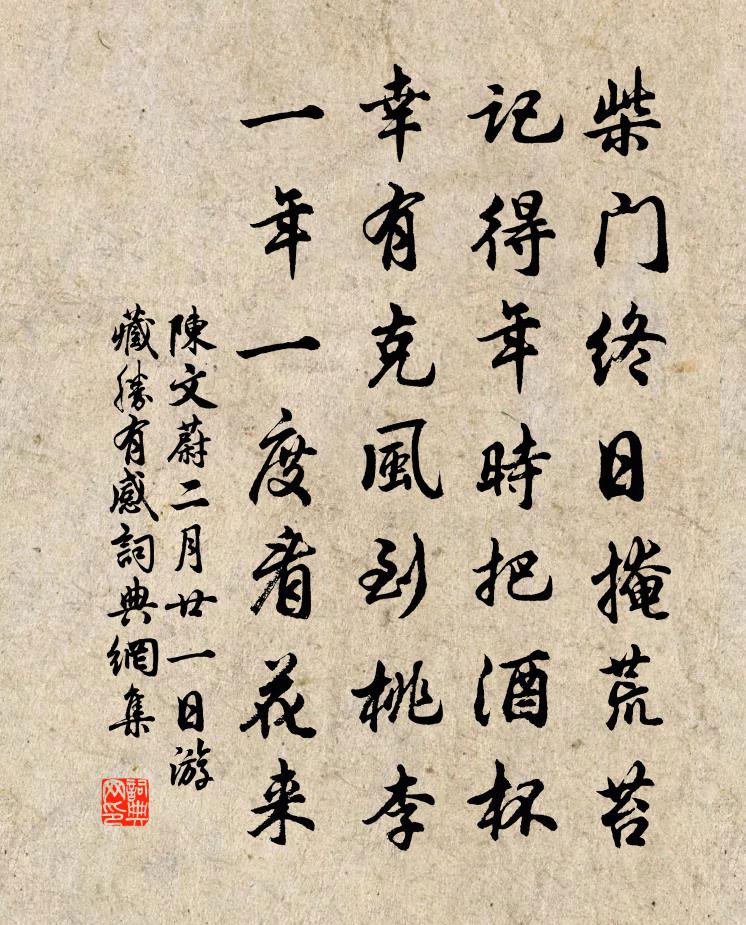 柴门终日掩荒苔
记得年時把酒杯
幸有克風到桃李
一年一度看花来
陳文蔚二月廿一日游
藏勝有感詞典網集
詞典
网印